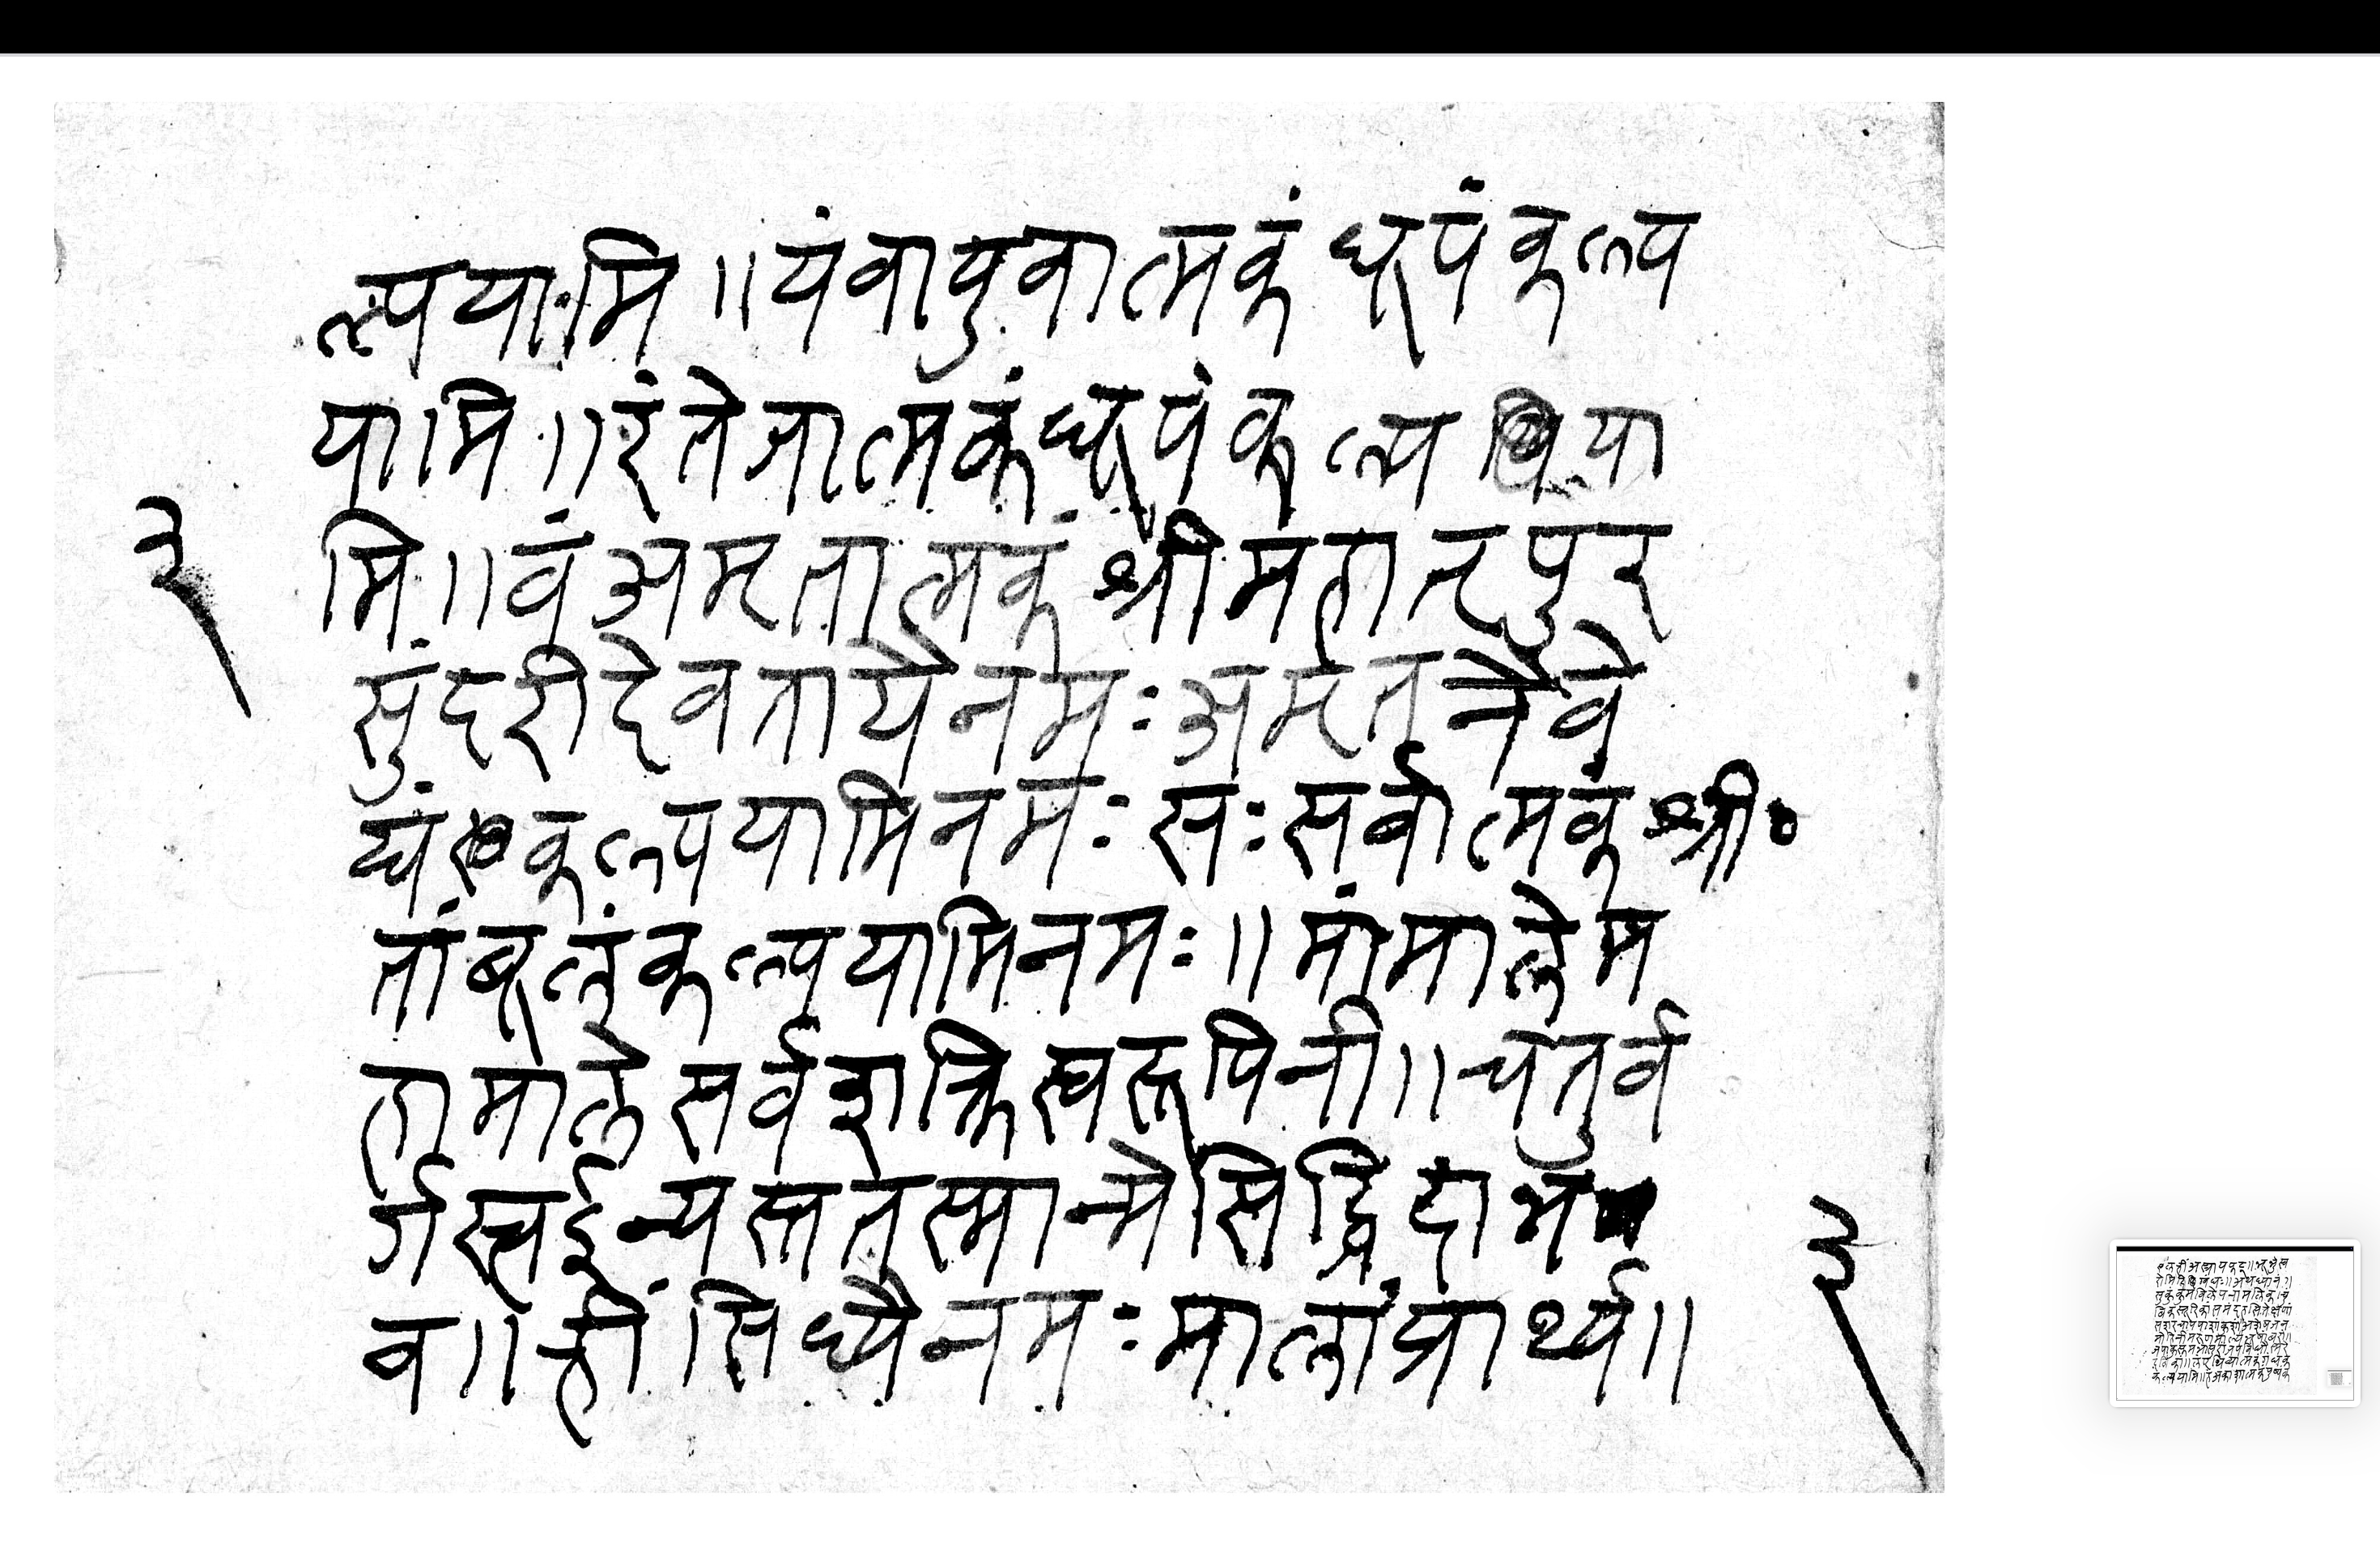 ल्पयामि ॥ यंवायुवात्मकं धूपंकल्प
यामि ॥ रंतेजात्मकंधूपंकल्प या
३
मि ॥ वंअमृतात्मकं श्रीमहात्रपुर
सुंदरीदेवतायैनमः अमृतनैवे
द्यं कल्पयामिनमः सः सर्वात्मकं श्री॰
तांबूलंकल्पयामिनमः ॥ मांमालेम
हामाले सर्वशक्तिस्वरूपिनी ॥ चतुर्व
र्गस्त्वईन्यस्ततस्मान्मेसिद्धिदाभ
व ॥ ह्रीं सिध्यैनमः मालांप्रार्थ्य ॥
३